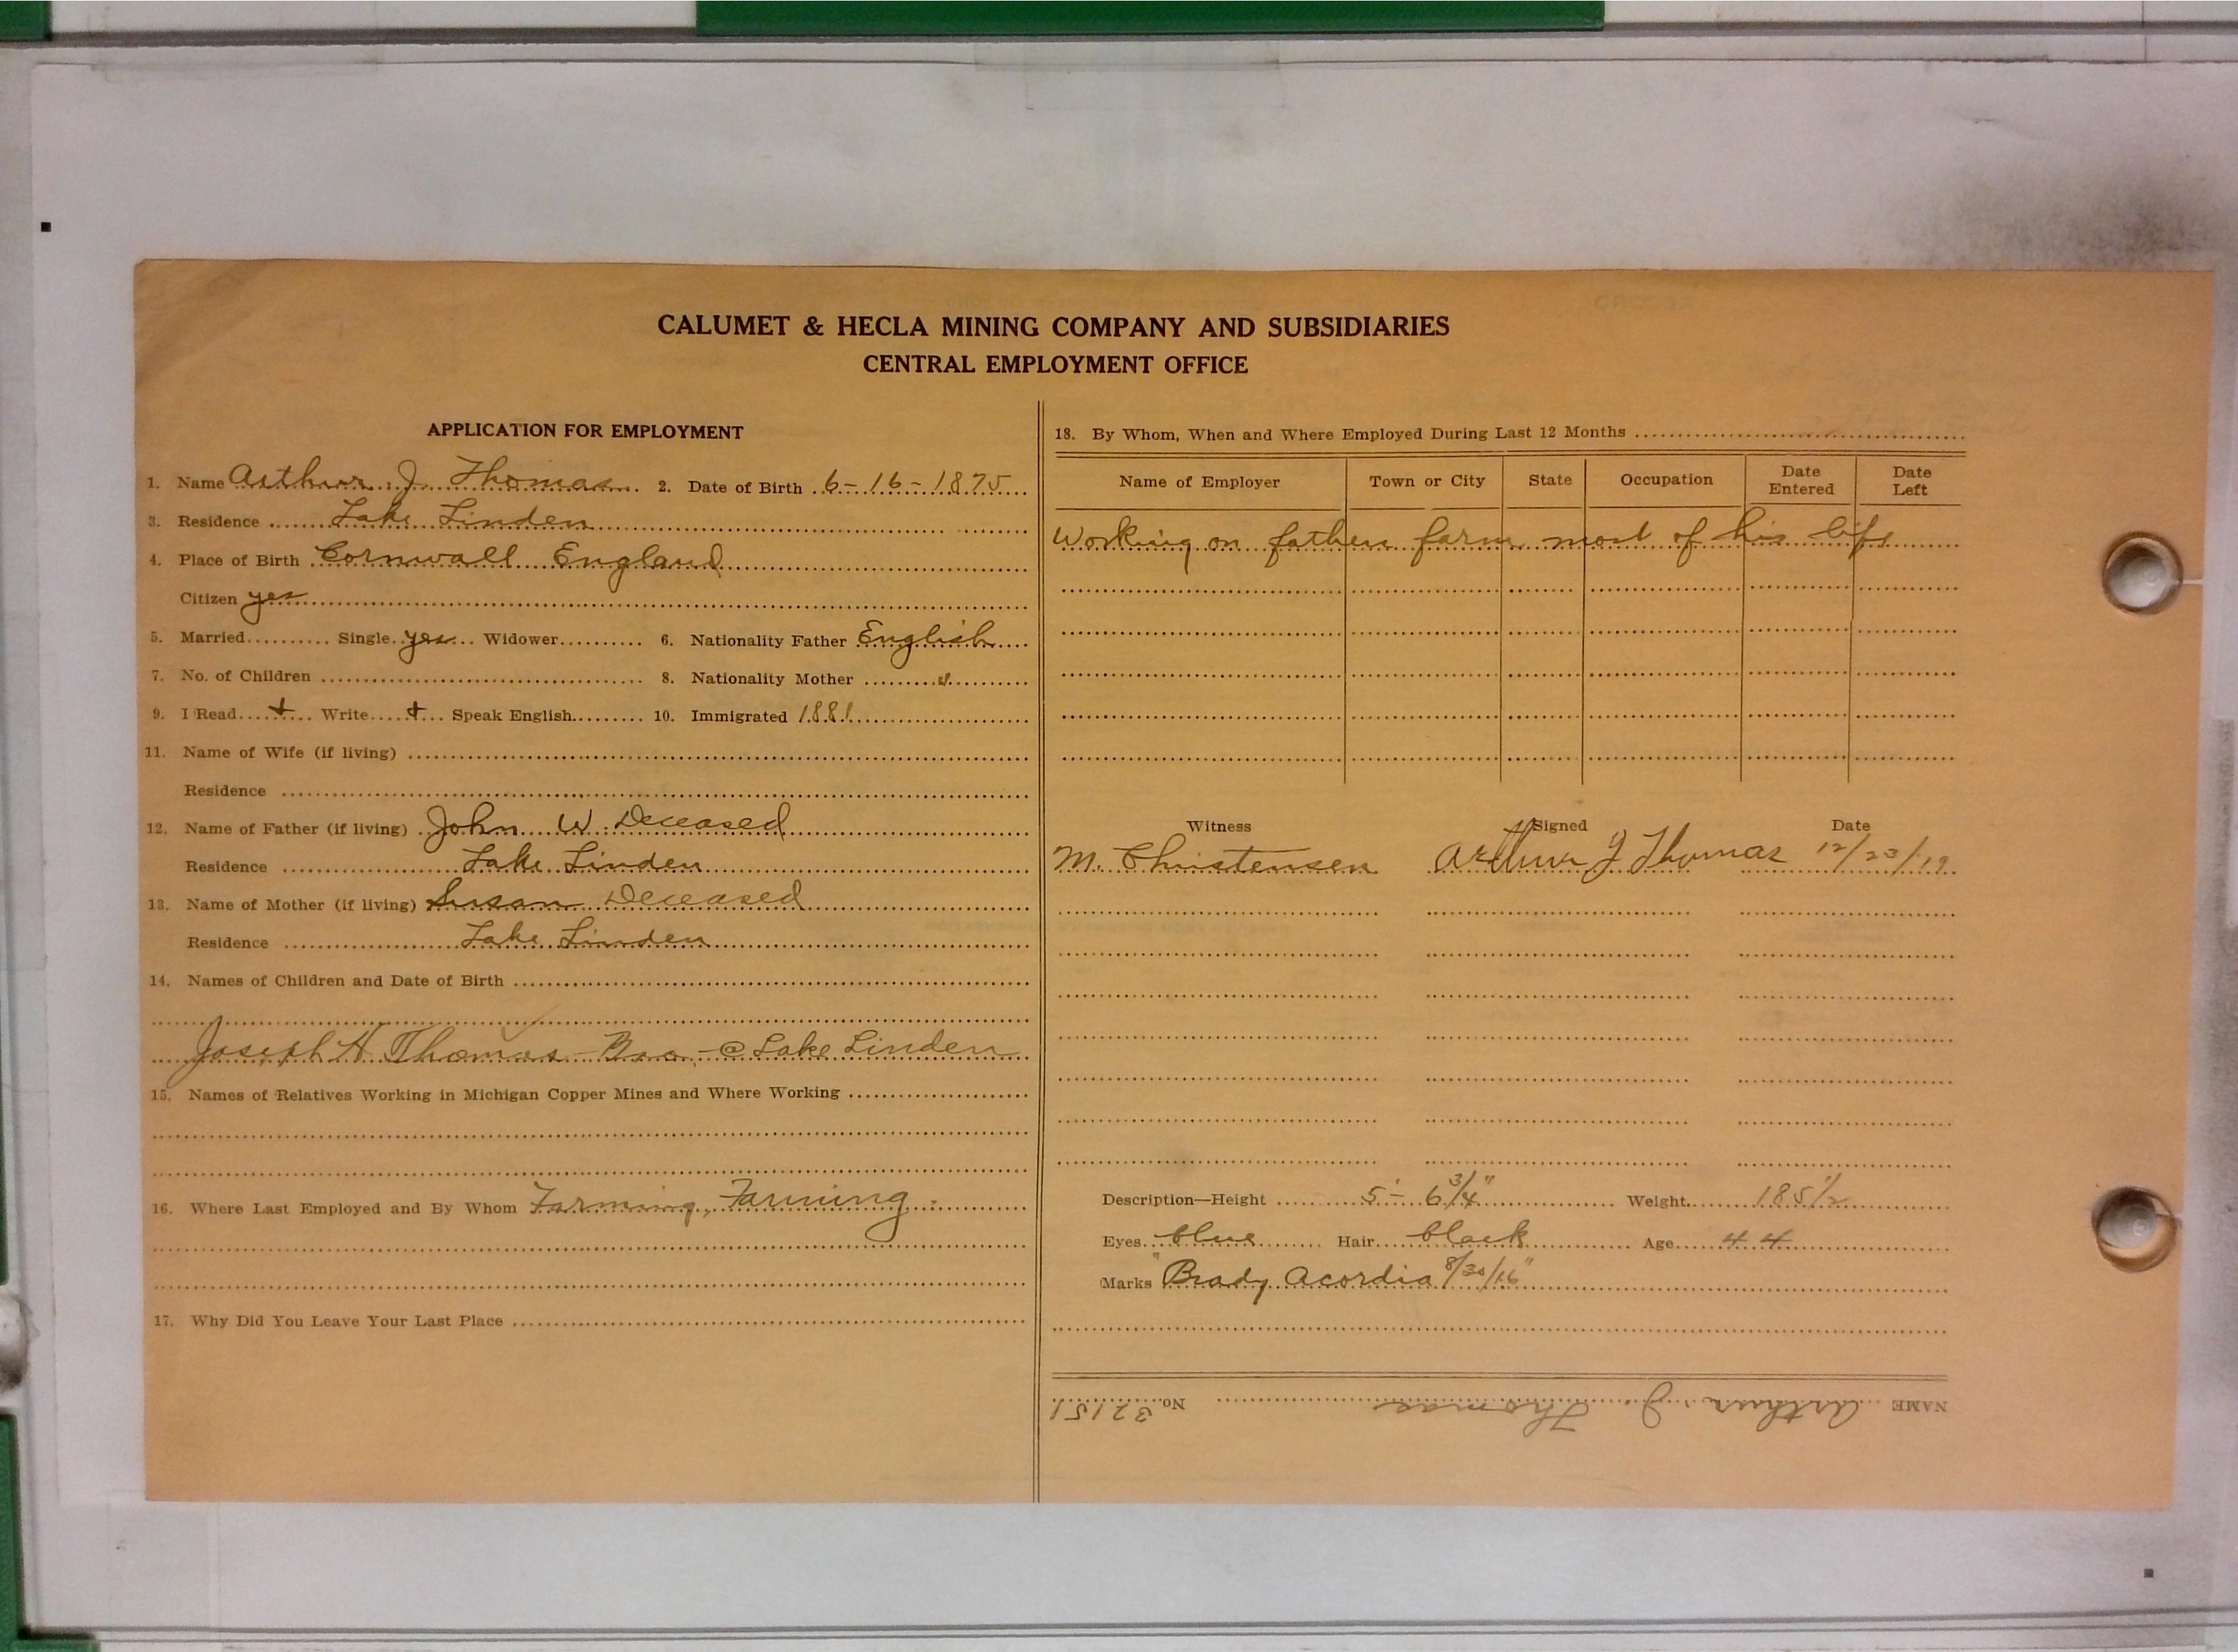 CALUMET & HECLA MINING COMPANY AND SUBSIDIARIES
CENTRAL EMPLOYMENT OFFICE
APPLICATION FOR EMPLOYMENT
1. Name Arthur J. Thomas 2. Date of Birth 6-16-1875
3. Residence Lake Linden
4. Place of Birth Cornwall England
Citizen yes
5. Married Single yes Widower 6. Nationality Father English
7. No. of Children 8. Nationality Mother "
9. I Read + Write + Speak English 10. Immigrated 1881
11. Name of Wife (if living)
Residence
12. Name of Father (if living) John W. Deceased
Residence Lake Linden
13. Name of Mother (if living) Susan Deceased
Residence Lake Linden
14. Names of Children and Date of Birth
Joseph H. Thomas - Bro. - @ Lake Linden
15. Names of Relatives Working in Michigan Copper Mines and Where Working
16. Where Last Employed and By Whom Farming, Farming.
17. Why Did You Leave Your Last Place
18. By Whom, When and Where Employed During Last 12 Months
Name of Employer Town or City State Occupation Date Entered Date Left
Working on father farm most of his life
Witness Signed Date
M. Christensen Arthur J Thomas 12/23/19
Description—Height 5'-6 3/4" Weight 185 1/2
Eyes blue Hair black Age 44
Marks "Brady Acordia 8/30/16"
NAME Arthur J. Thomas No. 32151